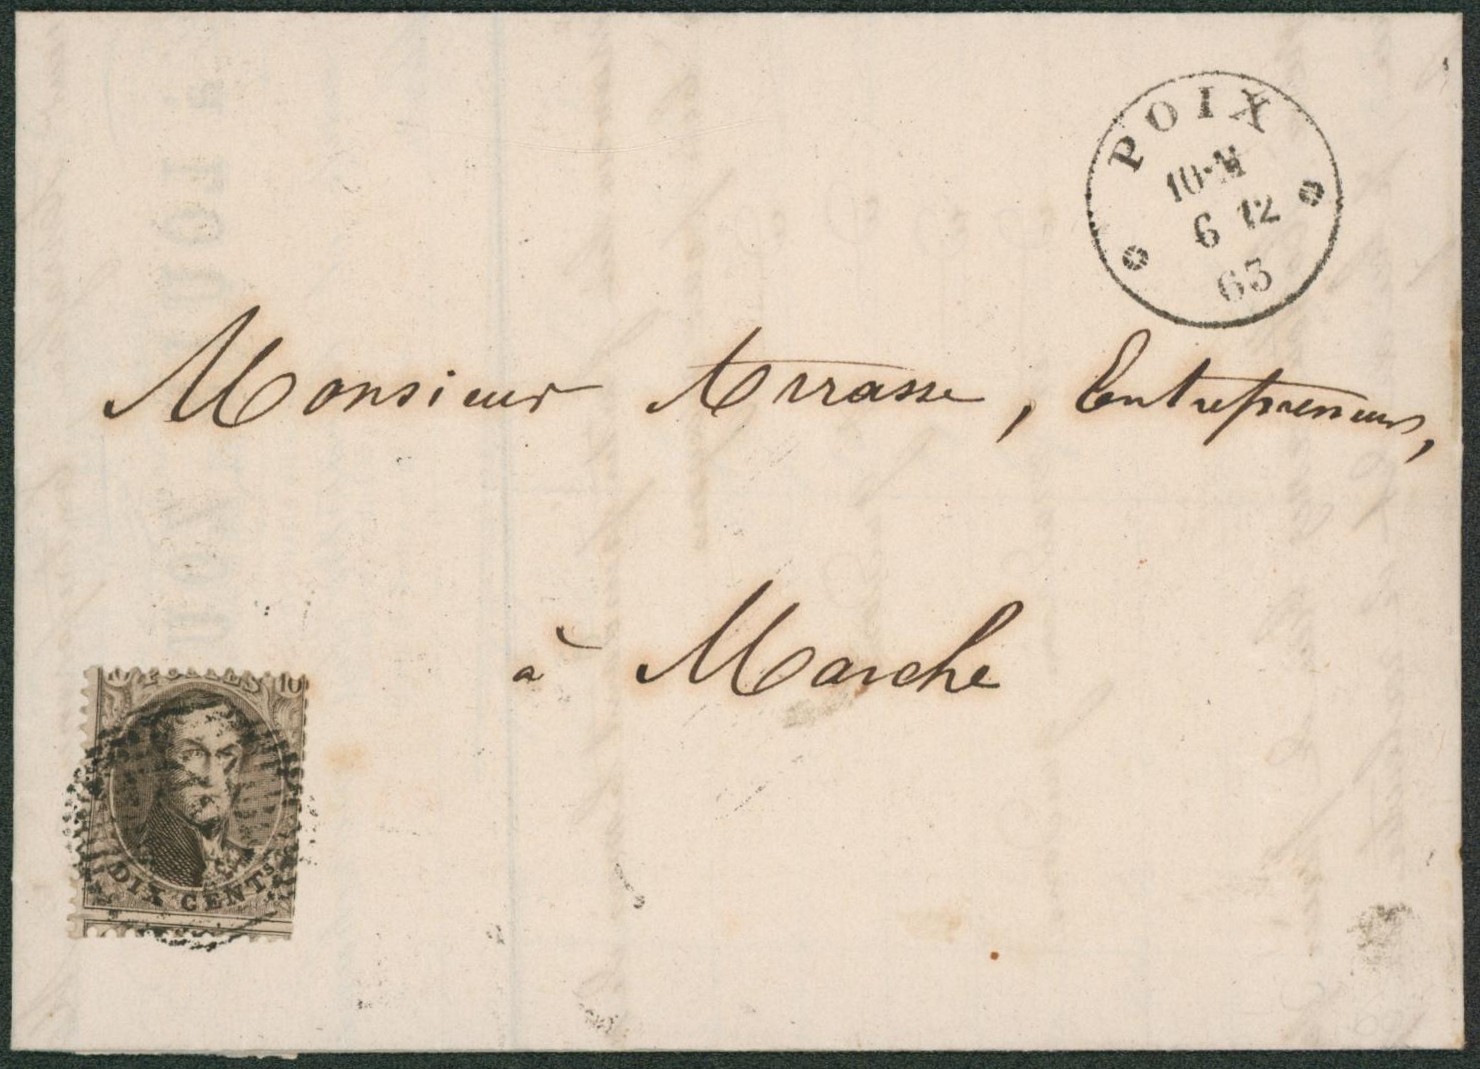 POIX
10·M
6 12
63
Monsieur Arrasse, Entrepreneur,
à Marche
10 POSTES 10
DIX CENTS